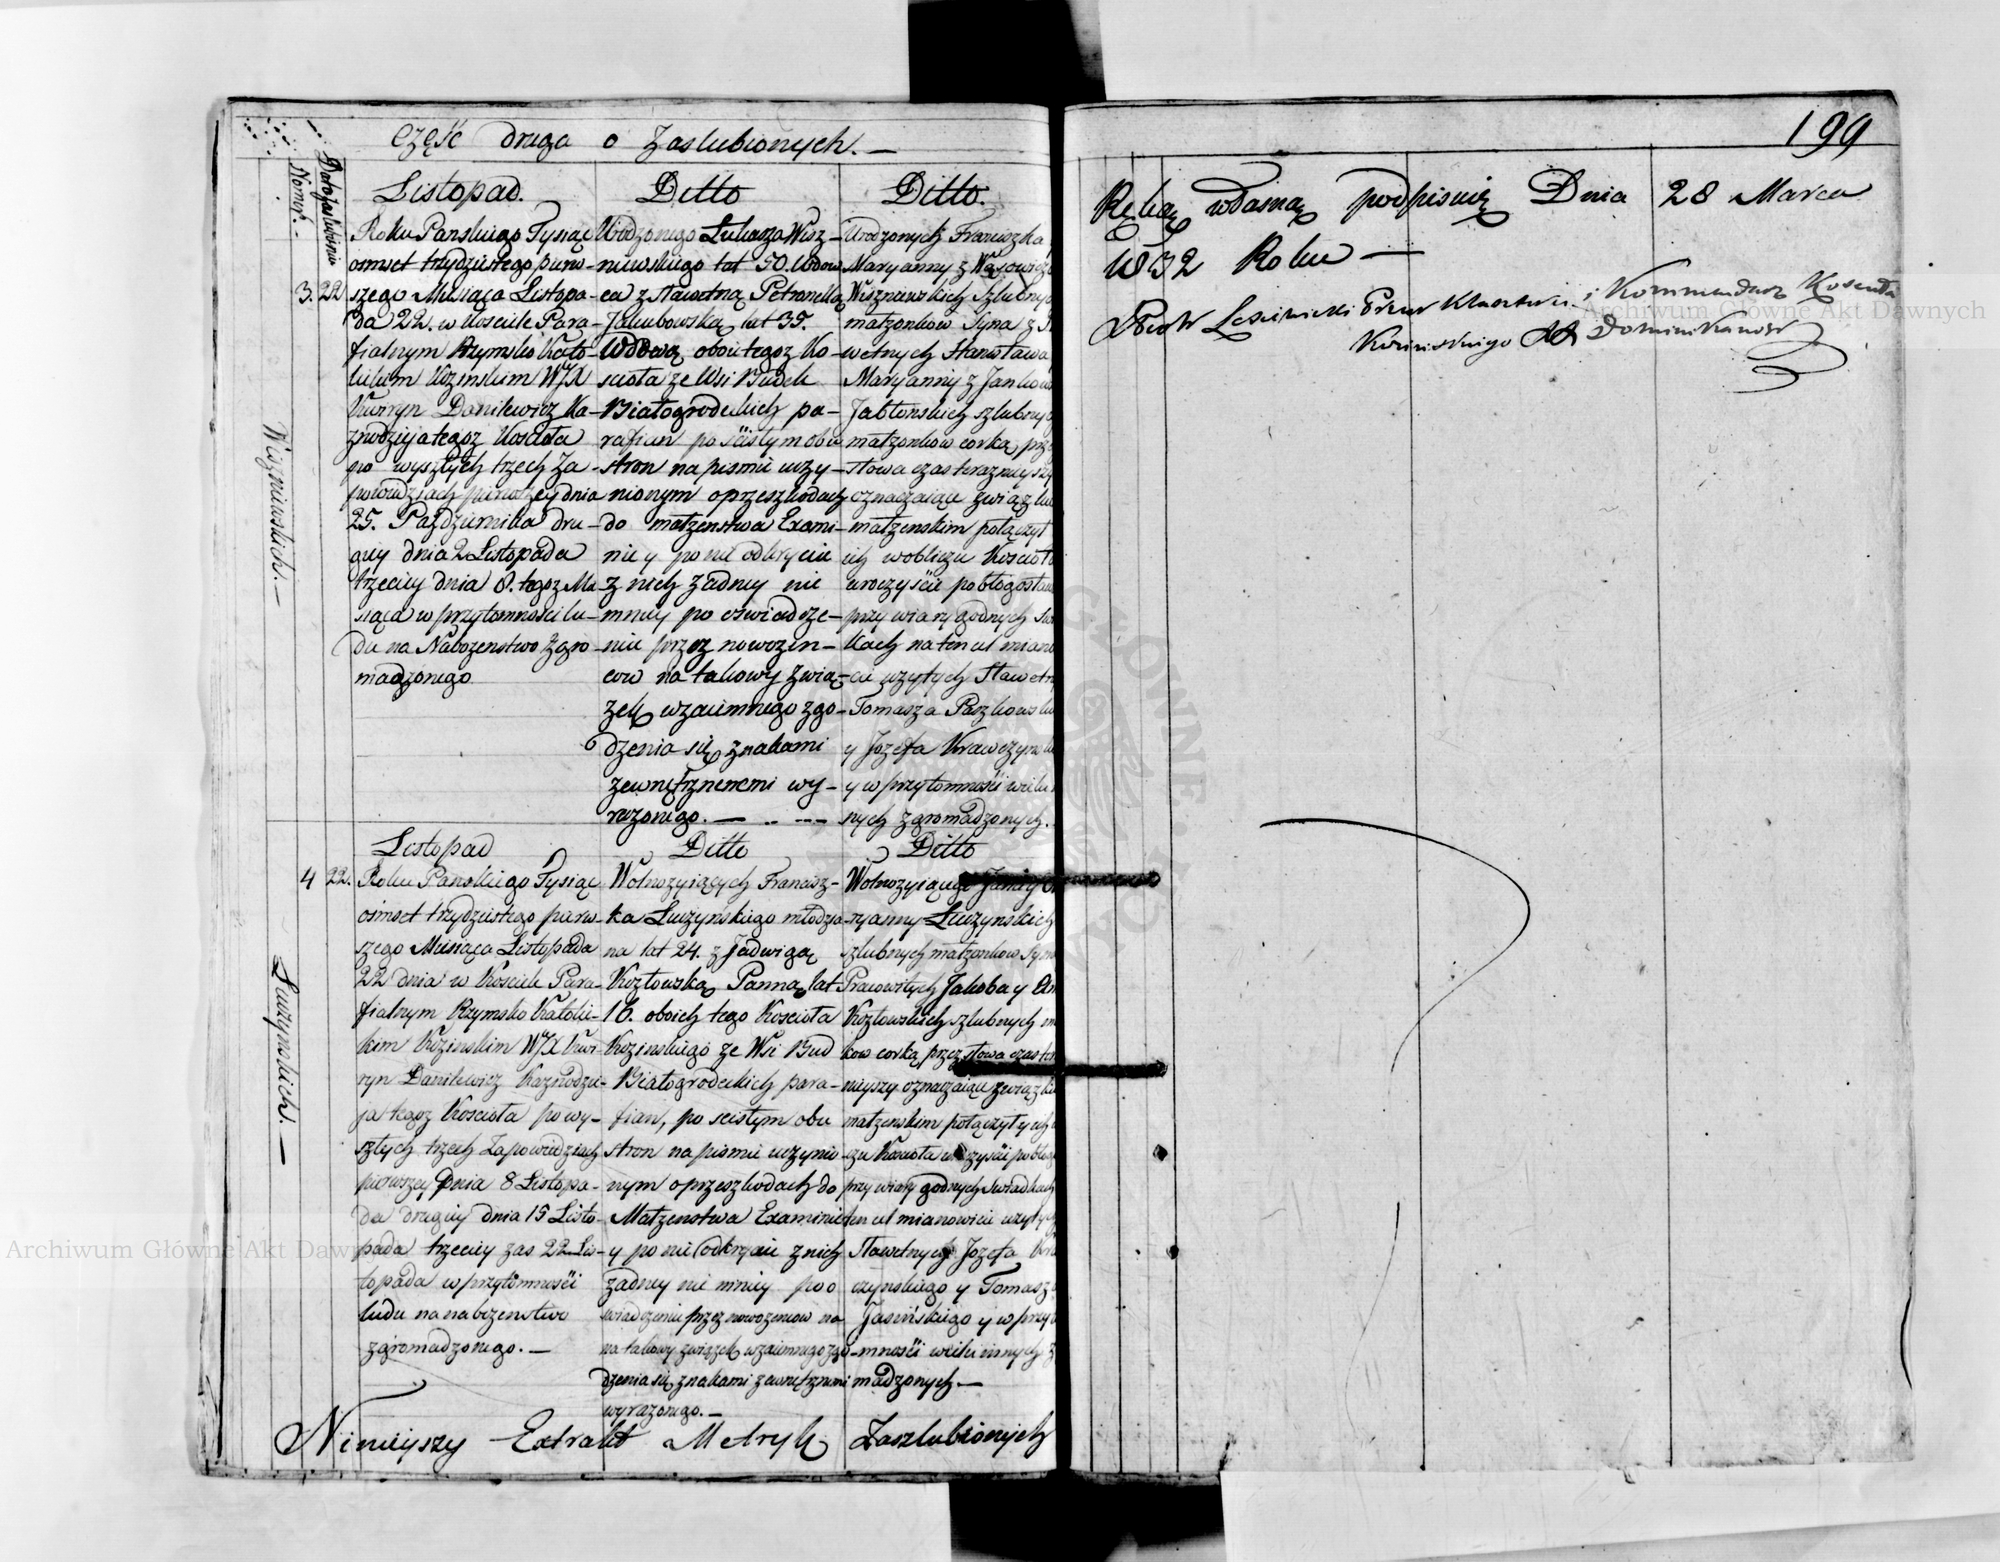 Część druga o Zaslubionych. —
Numer.
Data zaslubienia
Listopad.
3. 22
Wiszniewskich. —
Roku Panskiego Tysiąc
osmset trzydziestego pierw-
szego Miesiąca Listopa-
da 22. w Kosciele Para-
fialnym Rzymsko Kato-
lickim Kozinskim WJX
Kwiryn Danilewicz Ka-
znodzieja tegoz Kosciola
po wyszłych trzech Za-
powiedziach pierwszey dnia
25. Pazdziernika dru-
giey dnia 2 Listopada
trzeciey dnia 8. tegoz Mie-
siąca w przytomności lu-
du na Nabozenstwo zgro-
madzonego
Ditto
Urodzonego Lukasza Wisz-
niewskiego lat 50. Wdow-
ca z Sławetną Petronellą
Jakubowską lat 35.
Wdową oboie tegoz Ko-
sciola ze Wsi Budek
Białogrodeckich pa-
rafian po ścisłym obu
stron na pismie uczy-
nionym o przeszkodach
do małzenstwa Exami-
nie y po nie odkryciu
z nich żadney nie
mniey po oswiadcze-
niu przez nowozen-
cow na takowy zwią-
zek wzaiemnego zgo-
dzenia się znakami
zewnętrznemi wy-
rażonego. —
Ditto.
Urodzonych Franciszka
Maryanny z Wąsowicz
Wiszniewskich szlubnych
małzonkow Syna z
wetnych Stanisława
Maryanny z Jankow
Jabłonskich szlubnych
małzonkow corką, prz
słowa czas teraznieyszy
oznaczaiące związkiem
małzenskim połączył
ich w obliczu Kościoła
uroczyście pobłogosław
przy wiary godnych Sw
kach na ten cel miano
cie uzytych Sławetn
Tomasza Paszkowsk
y Jozefa Krawczynsk
y w przytomności wielu
nych zgromadzonych.
Listopad
4 22.
Luczynskich. —
Roku Panskiego Tysiąc
ośmset trzydziestego pierw-
szego Miesiąca Listopada
22 dnia w Kosciele Para-
fialnym Rzymsko Katolic-
kim Kozinskim WJX Kwi-
ryn Danilewicz Kaznodzie-
ja tegoz Kosciola po wy-
szłych trzech Zapowiedziach
pierwszey dnia 8 Listopa-
da drugiey dnia 15 Listo-
pada trzeciey zas 22 Lis-
topada w przytomności
ludu na nabozenstwo
zgromadzonego. —
Ditto
Wolnozyiących Francisz-
ka Luczyńskiego młodzia-
na lat 24. z Jadwigą
Kozłowską Panną lat
16. oboich tego Kosciola
Kozinskiego ze Wsi Bud
Białogrodeckich para-
fian, po scisłym obu
stron na pismie uczynio-
nym o przeszkodach do
Małzenstwa Examinie
y po nie odkryciu z nich
zadney nie mniey po o
swiadczeniu przez nowozencow na
na takowy związek wzaiemnego zgo-
dzenia się znakami zewnętrznemi
wyrazonego. —
Ditto
Wolnozyiącego
ryanny Luczynskich
szlubnych małzonkow Syn
Pracowitych Jakoba y
Kozłowskich szlubnych m
kow corką przez słowa czas ter
nieyszy oznaczaiące związkie
małzenskim połączył y ich
czu Kosciola uroczyście pobłog
przy wiary godnych Swiadkach
ten cel mianowicie uzytych
Sławetnych Jozefa Kra
czynskiego y Tomasza
Jasińskiego y w przyto
mności wielu innych z
madzonych. —
Ninieyszy Extrakt Metryk Zaszlubionych
199
Ręką własną podpisuię Dnia 28 Marca
1832 Roku —
Piotr Przeor Klasztoru i Kommendarz Koscioła
Kozinskiego Dominikanow
Archiwum Główne Akt Dawnych
Archiwum Główne Akt Dawnych